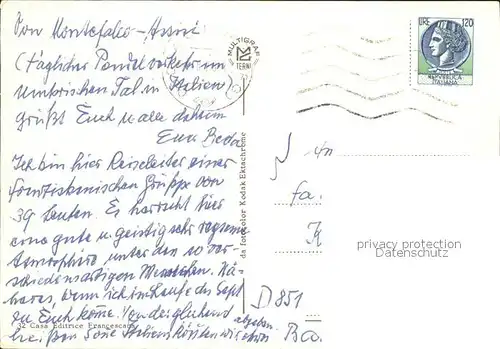 Von Montefalco - Assisi
(täglicher Pendelverkehr im
Umbrischen Tal in Italien)
grüßt Euch u. alle daheim
Euer Beda
Ich bin hier Reiseleiter einer
franziskanischen Gruppe von
39 Leuten. Es herrscht hier
eine gute u. geistig sehr regsame
Atmosphäre unter den so ver-
schiedenartigen Menschen. Nä-
heres, wenn ich im Laufe des Sept
zu Euch komme. Von der
heißen Sonne Italiens könnten wir etwas
abgeben.
32 Casa Editrice Francescana
MULTIGRAF
TERNI
da fotocolor Kodak Ektachrome
LIRE 120
REPVBBLICA
ITALIANA
An
Fa.
K
privacy protection
Datenschutz
D 851